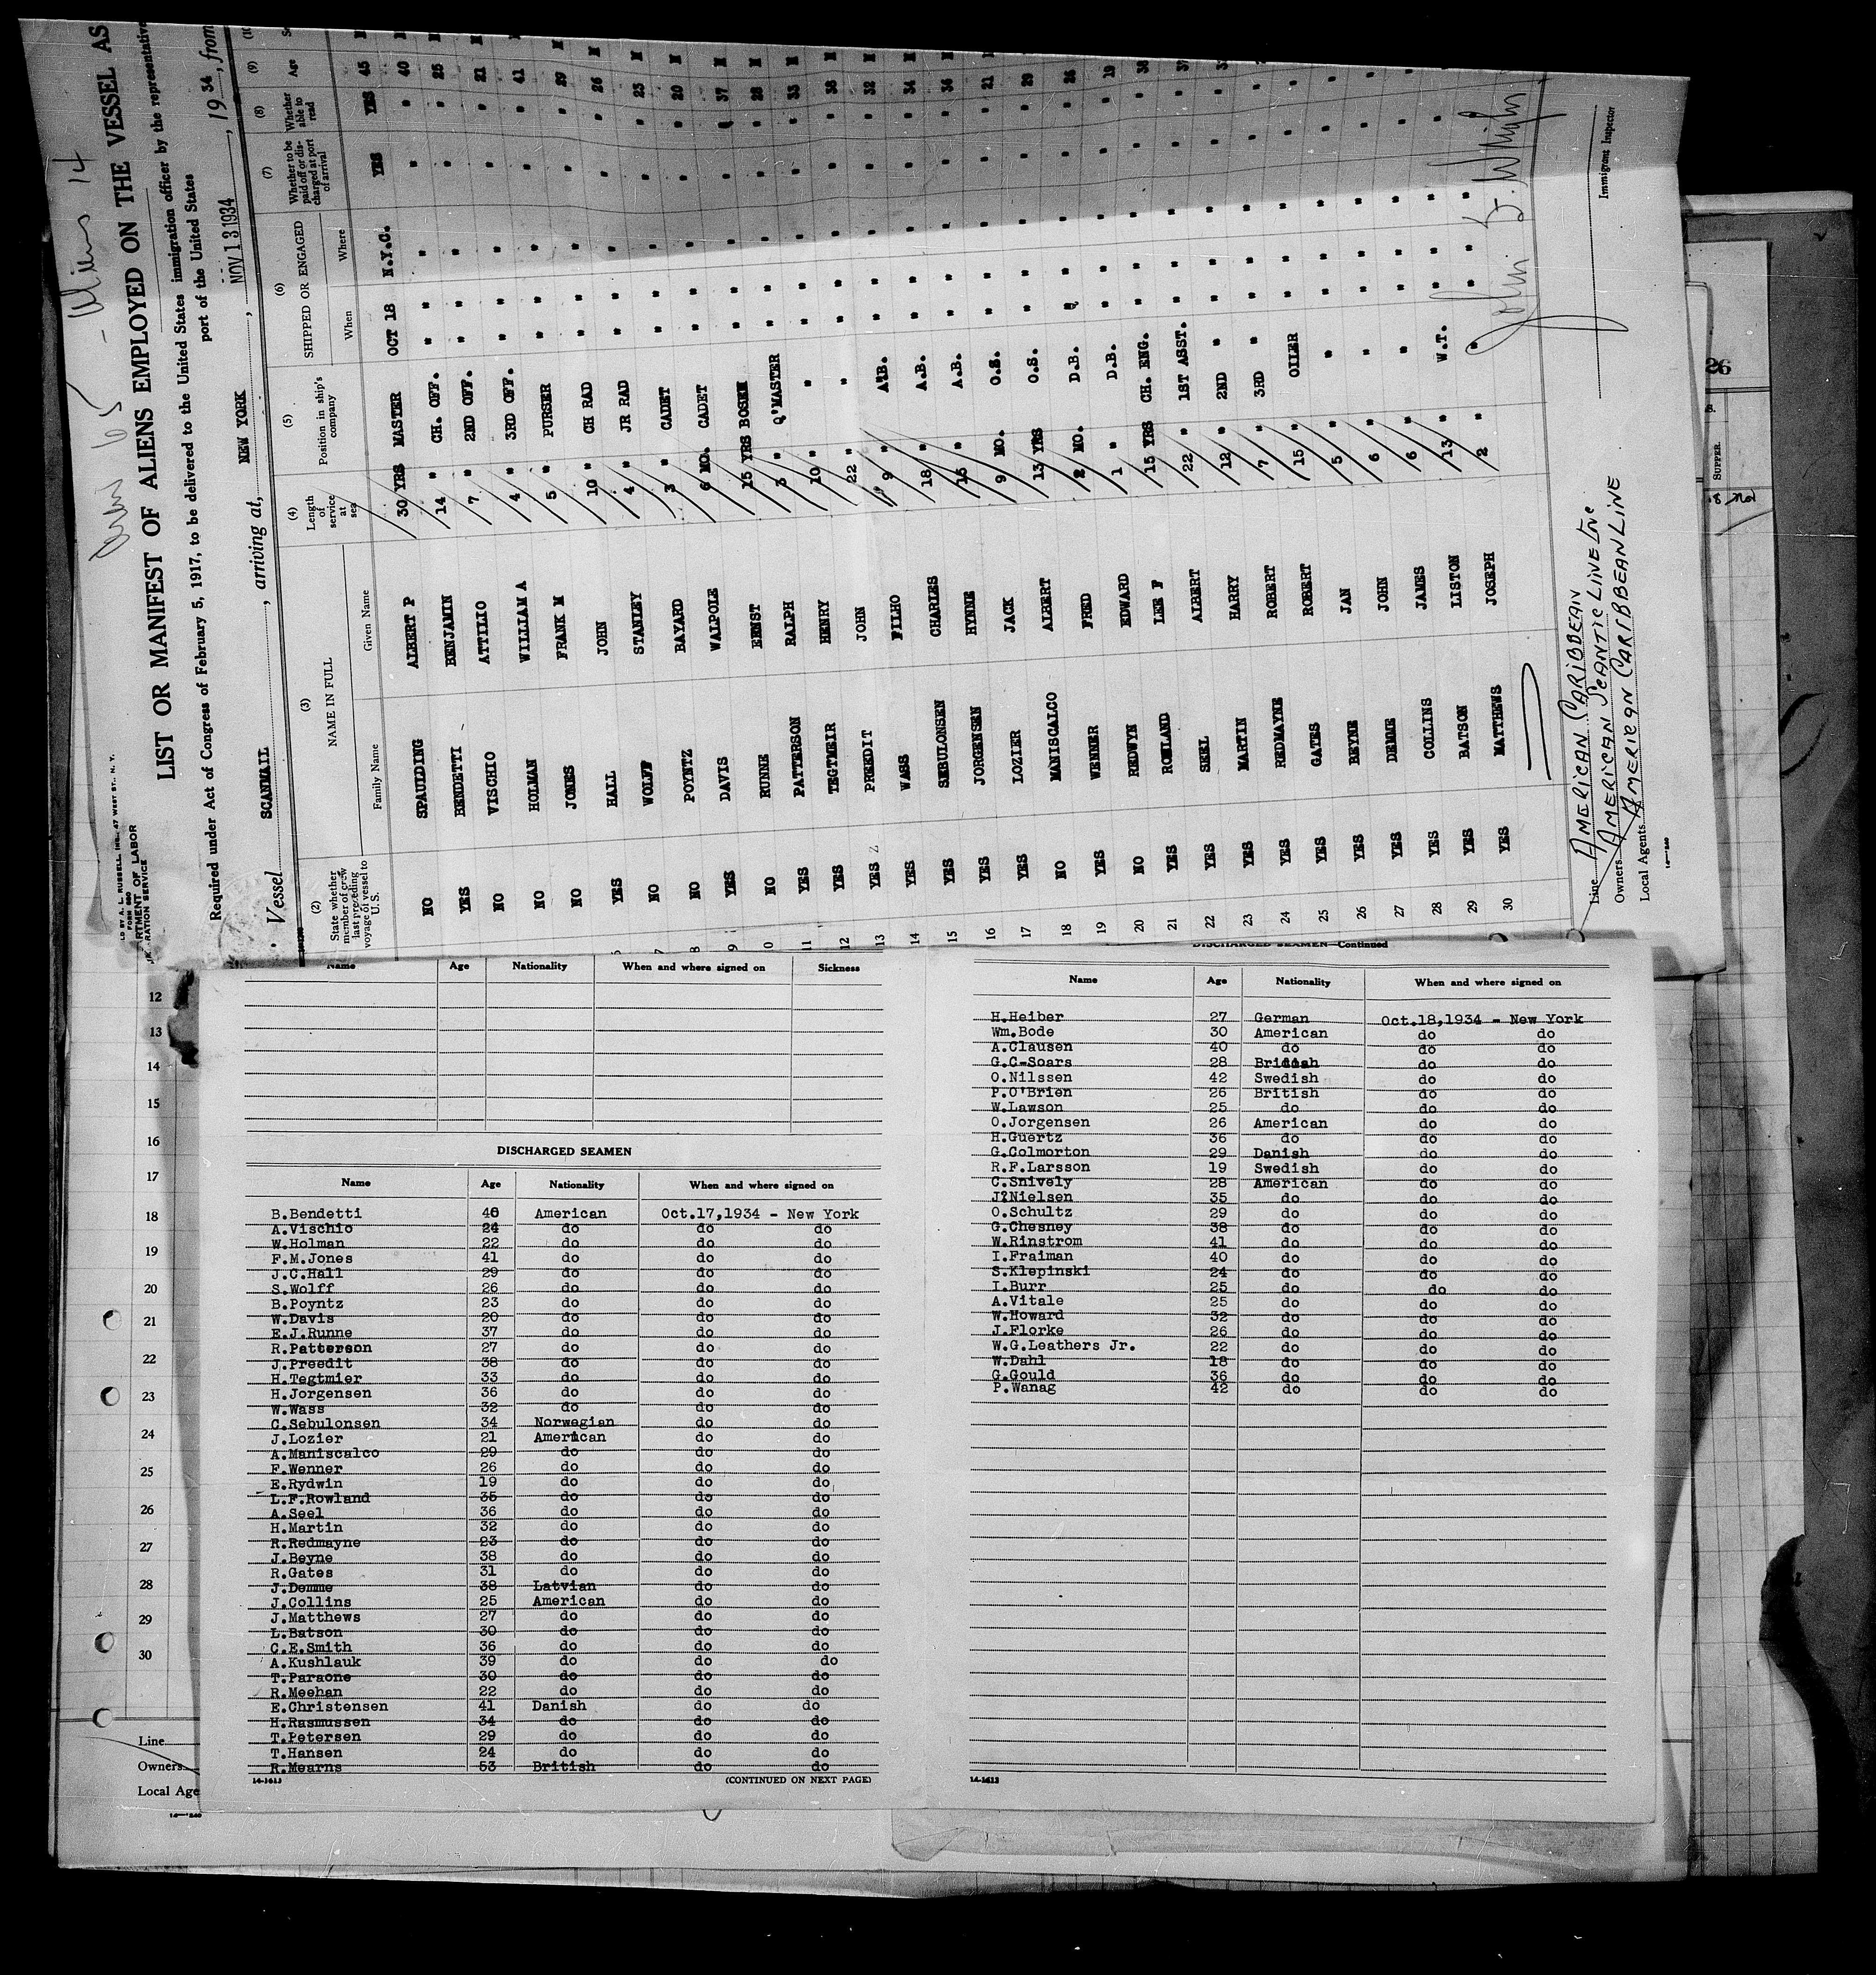 LIST OR MANIFEST OF ALIENS EMPLOYED ON THE VESSEL AS
Required under Act of Congress of February 5, 1917, to be delivered to the United States immigration officer by the representative
port of the United States
Vessel SCANMAIL, arriving at, NEW YORK, NOV 13 1934, 19 34, from
(2) (3) (4) (5) (6) (7) (8) (9)
State whether member of crew last preceding voyage of vessel to U.S. NAME IN FULL Family Name Given Name Length of service at sea Position in ship's company SHIPPED OR ENGAGED When Where Whether to be paid off or discharged at port of arrival Whether able to read Age
NO SPAULDING ALBERT P 30 YRS MASTER OCT 18 N.Y.C. YES YES 45
YES BENDETTI BENJAMIN 14 " CH. OFF. " " " " 40
NO VISCHIO ATTILIO 7 " 2ND OFF. " " " " 25
NO HOLMAN WILLIAM A 4 " 3RD OFF. " " " " 21
NO JONES FRANK M 5 " PURSER " " " " 41
YES HALL JOHN 10 " CH RAD " " " " 29
NO WOLFF STANLEY 4 " JR RAD " " " " 26
8 NO POYNTZ BAYARD 3 " CADET " " " " 23
9 YES DAVIS WALPOLE 6 MO. CADET " " " " 20
10 NO RUNNE ERNST 15 YRS BOSEN " " " " 37
11 YES PATTERSON RALPH 3 " Q'MASTER " " " " 28
12 YES TEGTMEIR HENRY 10 " " " " " " 33
13 YES PREEDIT JOHN 22 " " " " " " 38
14 YES WASS FILHO 9 " A.B. " " " " 32
15 YES SEBULONSEN CHARLES 18 " A.B. " " " " 34
16 YES JORGENSEN HYNNE 15 " A.B. " " " " 36
17 YES LOZIER JACK 9 MO. O.S. " " " " 21
18 NO MANISCALCO ALBERT 13 YRS O.S. " " " " 29
19 YES WENNER FRED 2 MO. D.B. " " " " 26
20 NO REDWYN EDWARD 1 " D.B. " " " " 19
21 YES ROWLAND LEE F 15 YRS CH. ENG. " " " "
22 YES SEEL ALBERT 22 " 1ST ASST. " " " "
23 YES MARTIN HARRY 12 " 2ND " " " " "
24 YES REDMAYNE ROBERT 7 " 3RD " " " " "
25 YES GATES ROBERT 15 " OILER " " " "
26 YES BEYNE JAN 5 " " " " " "
27 YES DEMME JOHN 6 " " " " " "
28 YES COLLINS JAMES 6 " " " " " "
29 YES BATSON LISTON 13 " W.T. " " " "
30 YES MATTHEWS JOSEPH 2 " " " " "
Line AMERICAN CARIBBEAN
Owners AMERICAN SCANTIC LINE INC
Local Agents AMERICAN CARIBBEAN LINE
Immigrant Inspector
Name Age Nationality When and where signed on Sickness
DISCHARGED SEAMEN
Name Age Nationality When and where signed on
B.Bendetti 40 American Oct.17,1934 - New York
A.Vischio 24 do do do
W.Holman 22 do do do
F.M.Jones 41 do do do
J.C.Hall 29 do do do
S.Wolff 26 do do do
B.Poyntz 23 do do do
W.Davis 20 do do do
E.J.Runne 37 do do do
R.Patterson 27 do do do
J.Preedit 38 do do do
H.Tegtmier 33 do do do
H.Jorgensen 36 do do do
W.Wass 32 do do do
C.Sebulonsen 34 Norwegian do do
J.Lozier 21 American do do
A.Maniscalco 29 do do do
F.Wenner 26 do do do
E.Rydwin 19 do do do
L.F.Rowland 35 do do do
A.Seel 36 do do do
H.Martin 32 do do do
R.Redmayne 23 do do do
J.Beyne 38 do do do
R.Gates 31 do do do
J.Demme 38 Latvian do do
J.Collins 25 American do do
J.Matthews 27 do do do
L.Batson 30 do do do
C.E.Smith 36 do do do
A.Kushlauk 39 do do do
T.Paraone 30 do do do
R.Meehan 22 do do do
E.Christensen 41 Danish do do
H.Rasmussen 34 do do do
T.Petersen 29 do do do
T.Hansen 24 do do do
R.Mearns 53 British do do
14-1613 (CONTINUED ON NEXT PAGE)
DISCHARGED SEAMEN—Continued
Name Age Nationality When and where signed on
H.Heiber 27 German Oct.18,1934 - New York
Wm.Bode 30 American do do
A.Clausen 40 do do do
G.C-Soars 28 British do do
O.Nilssen 42 Swedish do do
P.O'Brien 26 British do do
W.Lawson 25 do do do
O.Jorgensen 26 American do do
H.Guertz 36 do do do
G.Colmorton 29 Danish do do
R.F.Larsson 19 Swedish do do
C.Snively 28 American do do
J?Nielsen 35 do do do
O.Schultz 29 do do do
G.Chesney 38 do do do
W.Rinstrom 41 do do do
I.Fraiman 40 do do do
S.Klepinski 24 do do do
I.Burr 25 do do do
A.Vitale 25 do do do
W.Howard 32 do do do
J.Florke 26 do do do
W.G.Leathers Jr. 22 do do do
W.Dahl 18 do do do
G.Gould 36 do do do
P.Wanag 42 do do do
14-1613
12
13
14
15
16
17
18
19
20
21
22
23
24
25
26
27
28
29
30
Line
Owners
Local Age
26
SUPPER